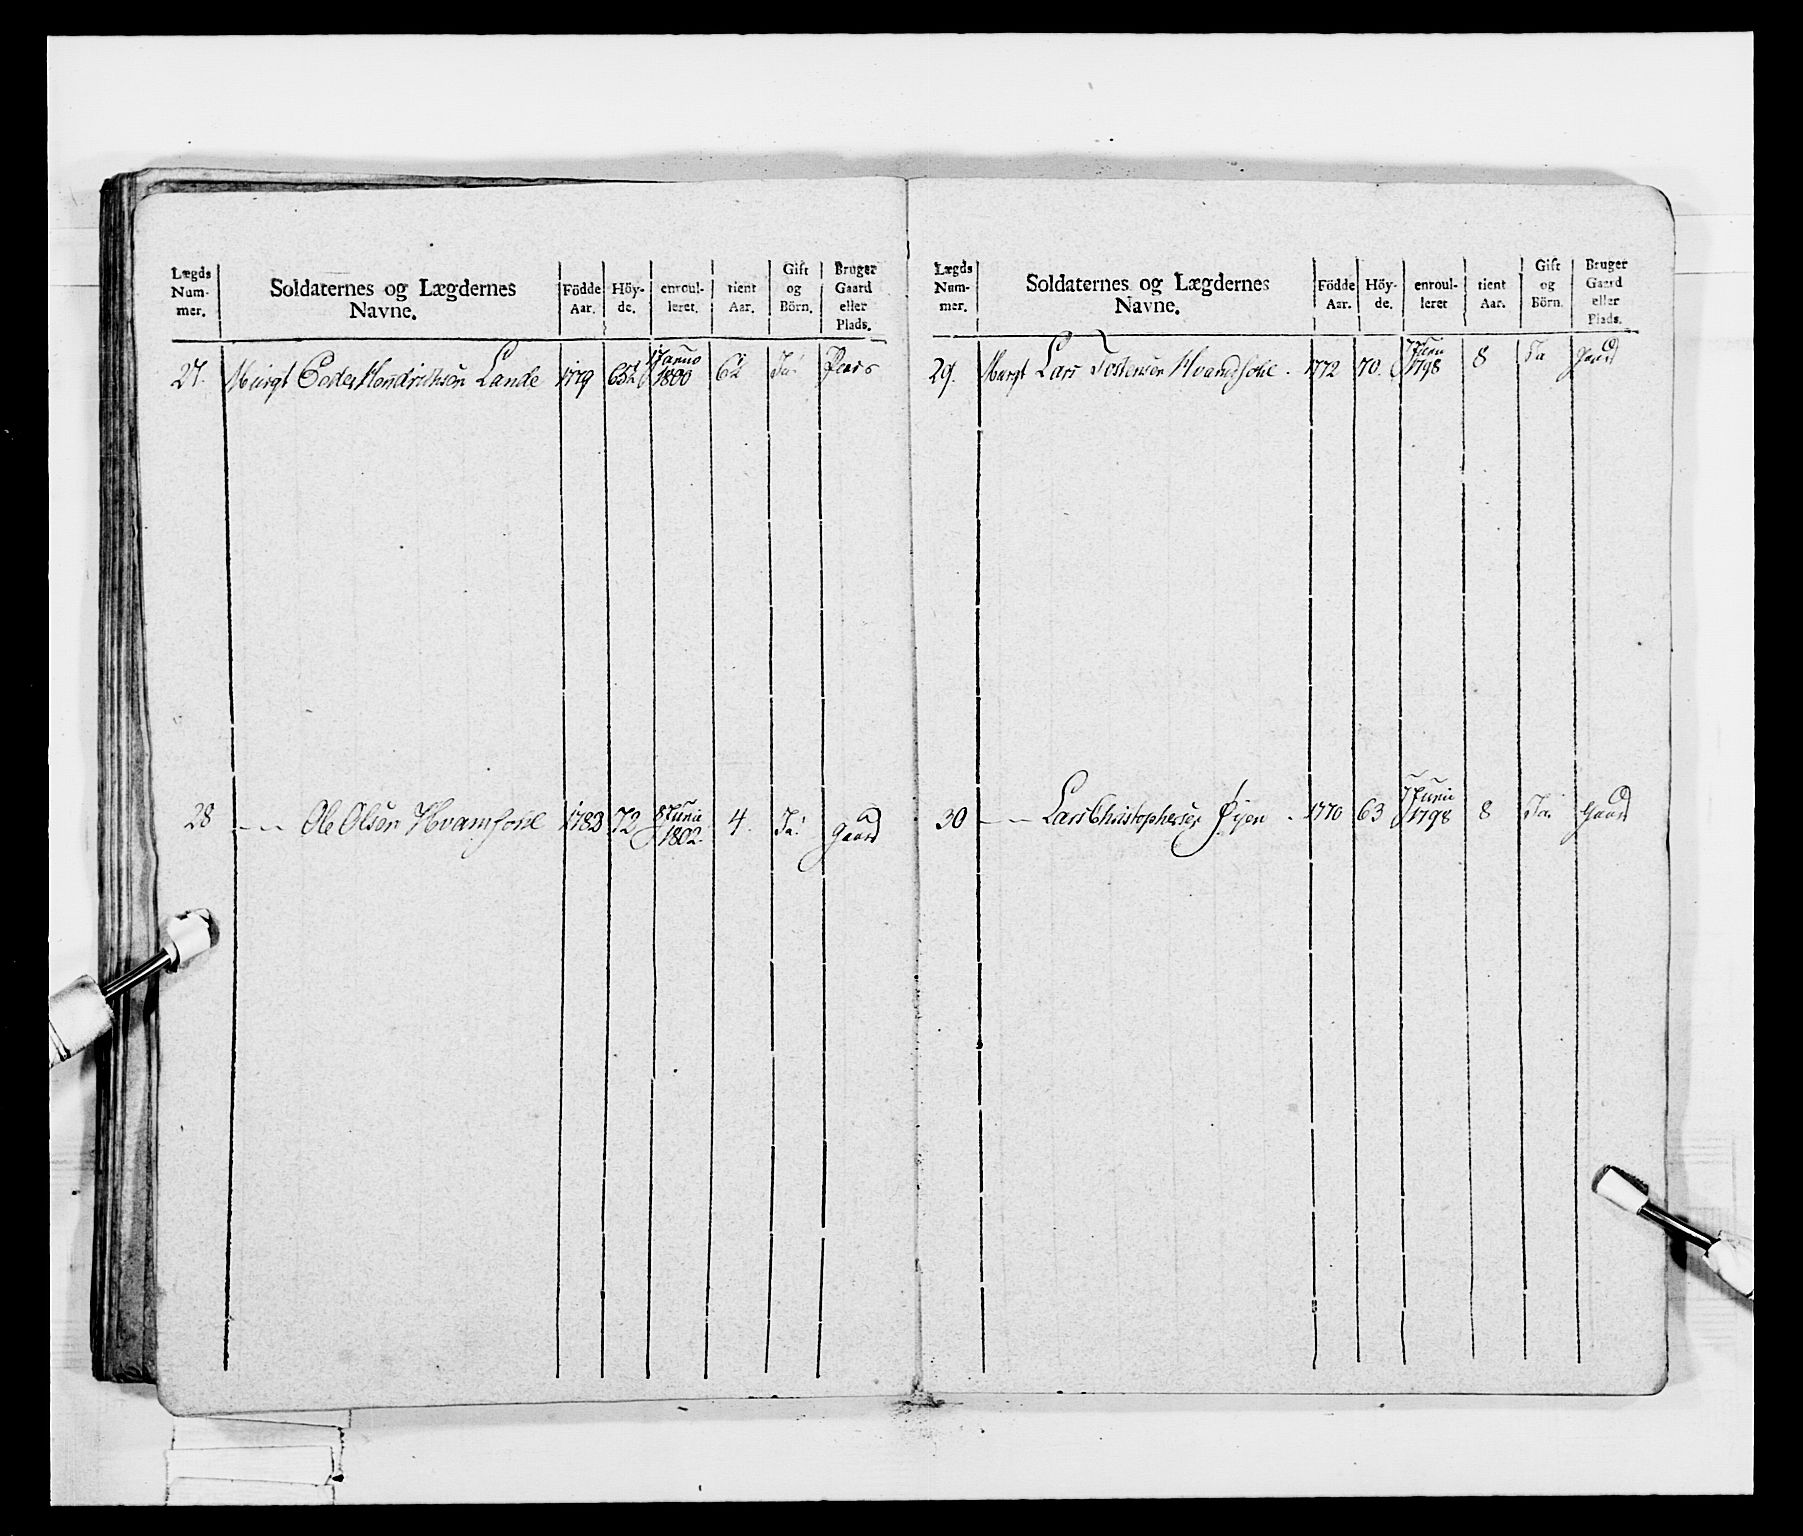 Lægds Num- mer. Soldaternes og Lægdernes Navne. Födde Aar. Höy- de. enroul- leret. tient Aar. Gift og Börn. Bruger Gaard eller Plads.
27. Musqt Peder Hendrichsön Lande 1779 63½ 17 1800 6½ Ja
28 — — Ole Olsön Hvamsoe 1783 72 8 Junii 1802. 4. Ja. Gaard
Lægds Num- mer. Soldaternes og Lægdernes Navne. Födde Aar. Höy- de. enroul- leret tient Aar. Gift og Börn. Bruger Gaard eller Plads.
29. Musqt Lars Tostensön 1772 70. 7 Junii 1798 8 Ja Gaard
30 — — Lars Christophersen Øyen. 1770 63 7 Junii 1798 8 Ja Gaard